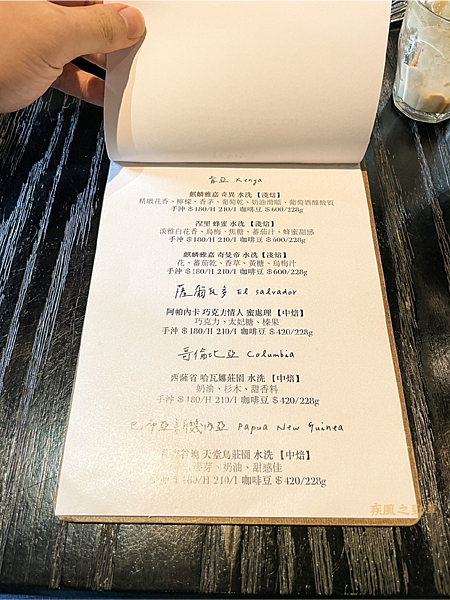 肯亞 Kenya
麒麟雅嘉 奇異 水洗【淺焙】
精緻花香、檸檬、香茅、葡萄乾、奶油滑順、葡萄酒釀酸質
手沖 $180/H 210/I 咖啡豆 $600/228g
涅里 蜂蜜 水洗【淺焙】
淡雅白花香、烏梅、焦糖、蕃茄汁、蜂蜜甜感
手沖 $180/H 210/I 咖啡豆 $600/228g
麒麟雅嘉 奇曼帝 水洗【淺焙】
花、蕃茄乾、香草、黃糖、烏梅汁
手沖 $180/H 210/I 咖啡豆 $600/228g
薩爾瓦多 El Salvador
阿帕內卡 巧克力情人 蜜處理【中焙】
巧克力、太妃糖、榛果
手沖 $180/H 210/I 咖啡豆 $420/228g
哥倫比亞 Columbia
西薩省 哈瓦娜莊園 水洗【中焙】
奶油、杉木、甜香料
手沖 $180/H 210/I 咖啡豆 $420/228g
巴布亞新幾內亞 Papua New Guinea
天堂鳥莊園 水洗【中焙】
麥芽、奶油、甜感佳
手沖 $180/H 210/I 咖啡豆 $420/228g
疾風之